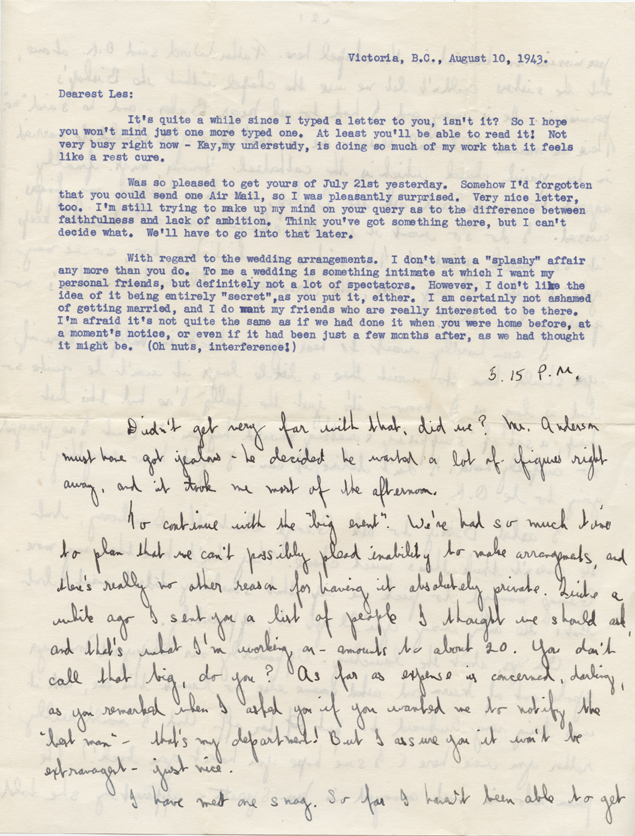 Victoria, B.C., August 10, 1943.
Dearest Les:
It's quite a while since I typed a letter to you, isn't it? So I hope
you won't mind just one more typed one. At least you'll be able to read it! Not
very busy right now - Kay,my understudy, is doing so much of my work that it feels
like a rest cure.
Was so pleased to get yours of July 21st yesterday. Somehow I'd forgotten
that you could send one Air Mail, so I was pleasantly surprised. Very nice letter,
too. I'm still trying to make up my mind on your query as to the difference between
faithfulness and lack of ambition. Think you've got something there, but I can't
decide what. We'll have to go into that later.
With regard to the wedding arrangements. I don't want a "splashy" affair
any more than you do. To me a wedding is something intimate at which I want my
personal friends, but definitely not a lot of spectators. However, I don't like the
idea of it being entirely "secret",as you put it, either. I am certainly not ashamed
of getting married, and I do want my friends who are really interested to be there.
I'm afraid it's not quite the same as if we had done it when you were home before, at
a moment's notice, or even if it had been just a few months after, as we had thought
it might be. (Oh nuts, interference!)
5.15 P.M.
Didn't get very far with that, did we? Mr. Anderson
must have got jealous - he decided he wanted a lot of figures right
away, and it took me most of the afternoon.
To continue with the "big event". We've had so much time
to plan that we can't possibly plead inability to make arrangements, and
there's really no other reason for having it absolutely private. Quite a
while ago I sent you a list of people I thought we should ask,
and that's what I'm working on - amounts to about 20. You don't
call that big, do you? As far as expense is concerned, darling,
as you remarked when I asked you if you wanted me to notify the
"best man" - that's my department! But I assure you it won't be
extravagant - just nice.
I have met one snag. So far I haven't been able to get